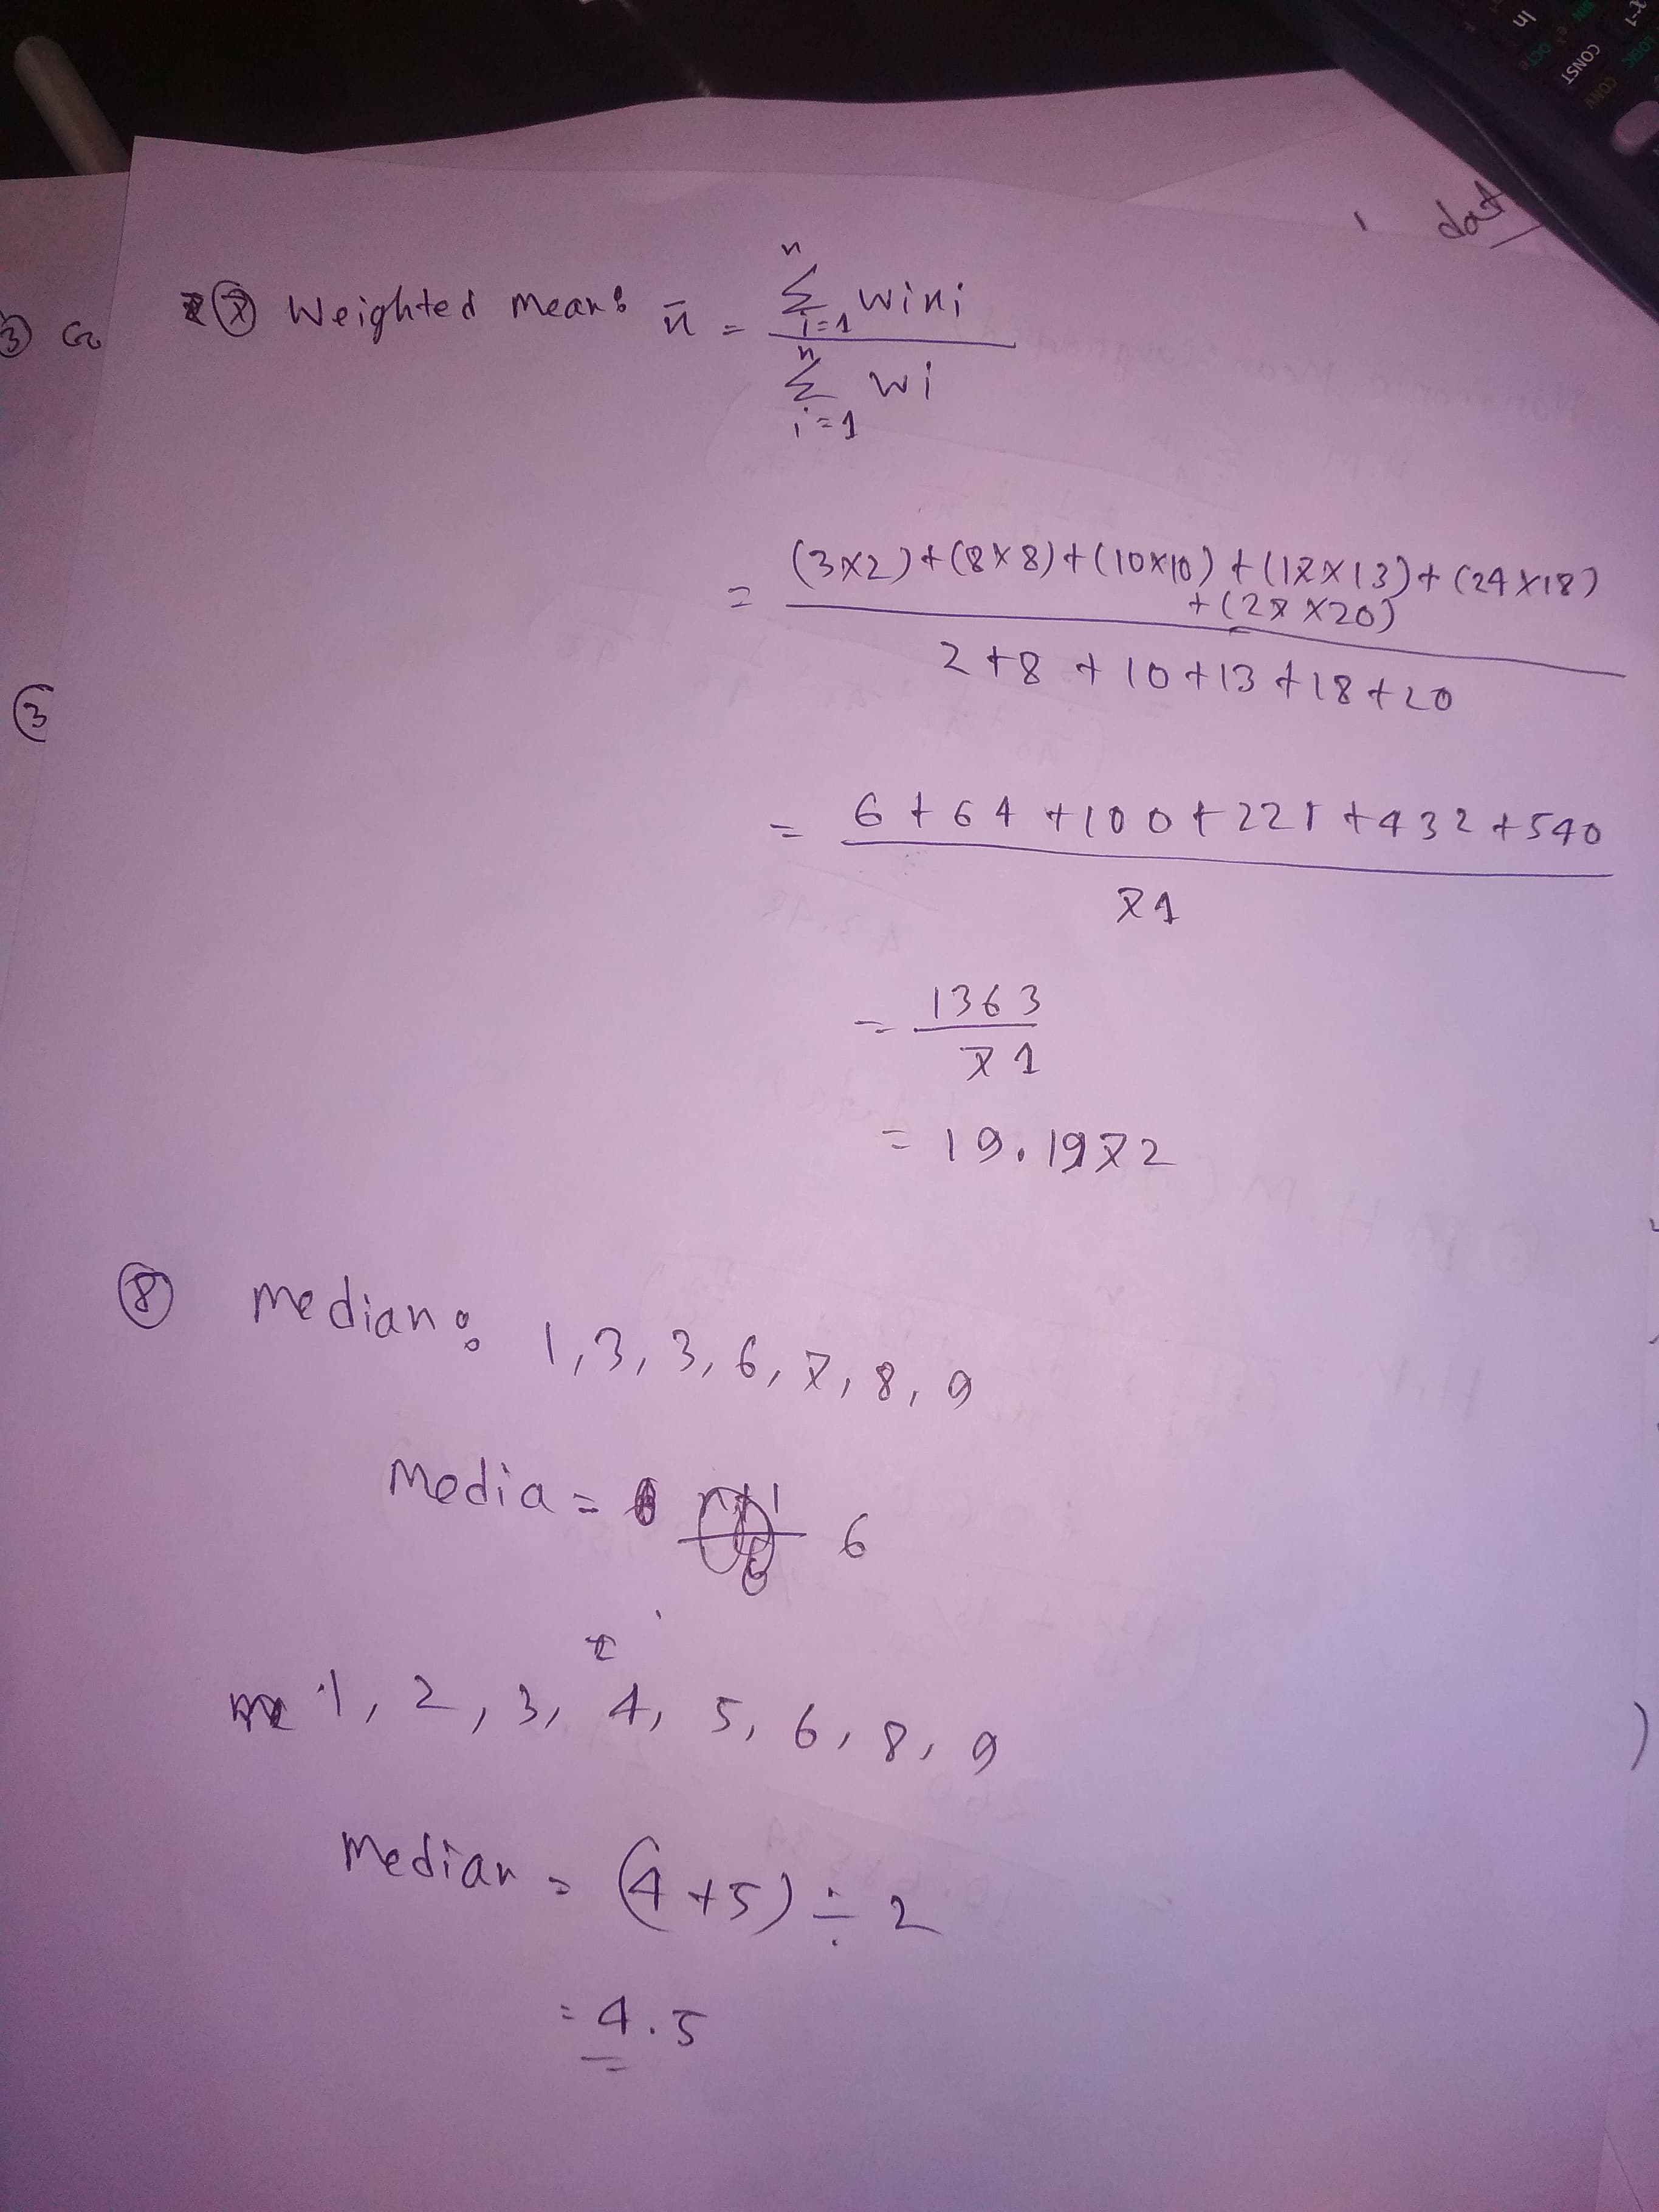 dat
3 G
7 Weighted Mean: x̄ = Σ(i=1 to n) wixi / Σ(i=1 to n) wi
= (3×2)+(8×8)+(10×10)+(17×13)+(24×18)
+(27×20)
2+8+10+13+18+20
= 6+64+100+221+432+540
71
3
= 1363
71
= 19.1972
8 Median: 1, 3, 3, 6, 7, 8, 9
Media = 6
1, 2, 3, 4, 5, 6, 8, 9
Median = (4+5) ÷ 2
= 4.5
ln
CONST
CONV
LOGIC